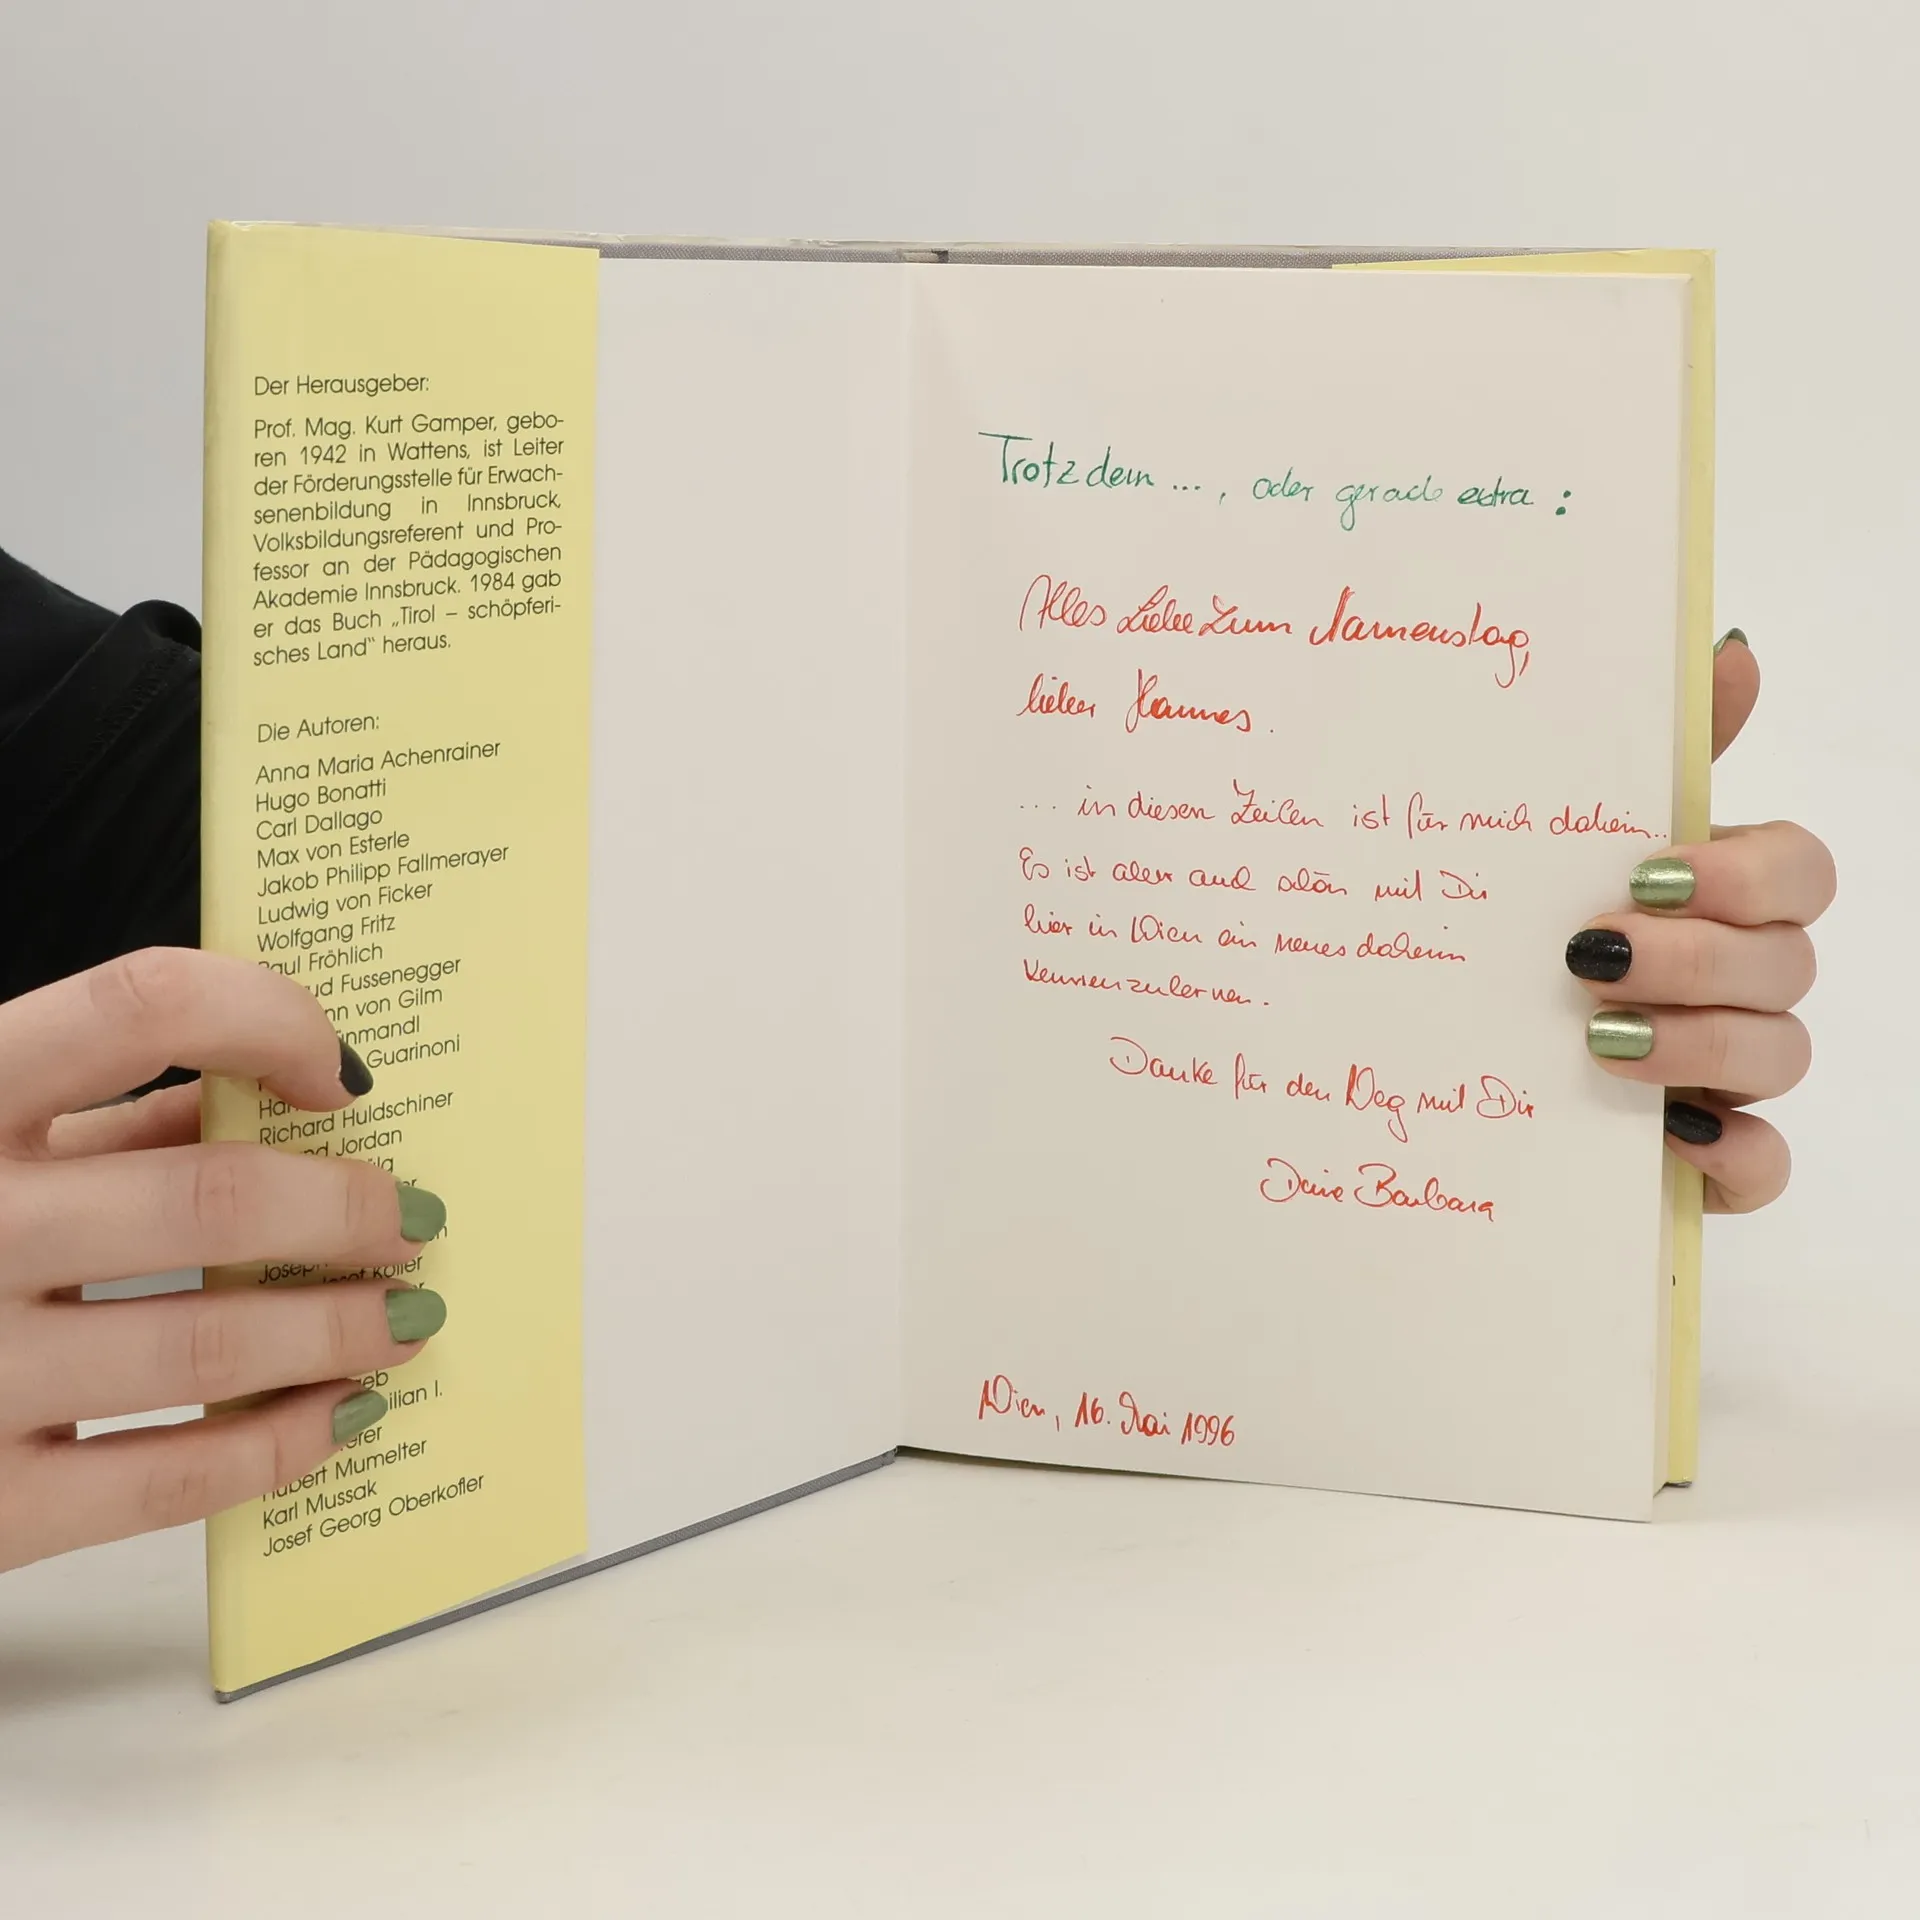 Der Herausgeber:
Prof. Mag. Kurt Gamper, gebo-
ren 1942 in Wattens, ist Leiter
der Förderungsstelle für Erwach-
senenbildung in Innsbruck,
Volksbildungsreferent und Pro-
fessor an der Pädagogischen
Akademie Innsbruck. 1984 gab
er das Buch „Tirol – schöpferi-
sches Land" heraus.
Die Autoren:
Anna Maria Achenrainer
Hugo Bonatti
Carl Dallago
Max von Esterle
Jakob Philipp Fallmerayer
Ludwig von Ficker
Wolfgang Fritz
aul Fröhlich
ud Fussenegger
nn von Gilm
nmandl
Guarinoni
Han
Richard Huldschiner
nd Jordan
Joseph
Josef Koller
eb
ilian I.
erer
Hubert Mumelter
Karl Mussak
Josef Georg Oberkofler
Trotzdem ... , oder gerade extra :
Alles Liebe zum Namenstag,
lieber Hannes.
... in diesen Zeilen ist für mich daheim..
Es ist aber auch schön mit Dir
hier in Wien ein neues daheim
kennenzulernen.
Danke für den Weg mit Dir
Deine Barbara
Wien, 16. Mai 1996